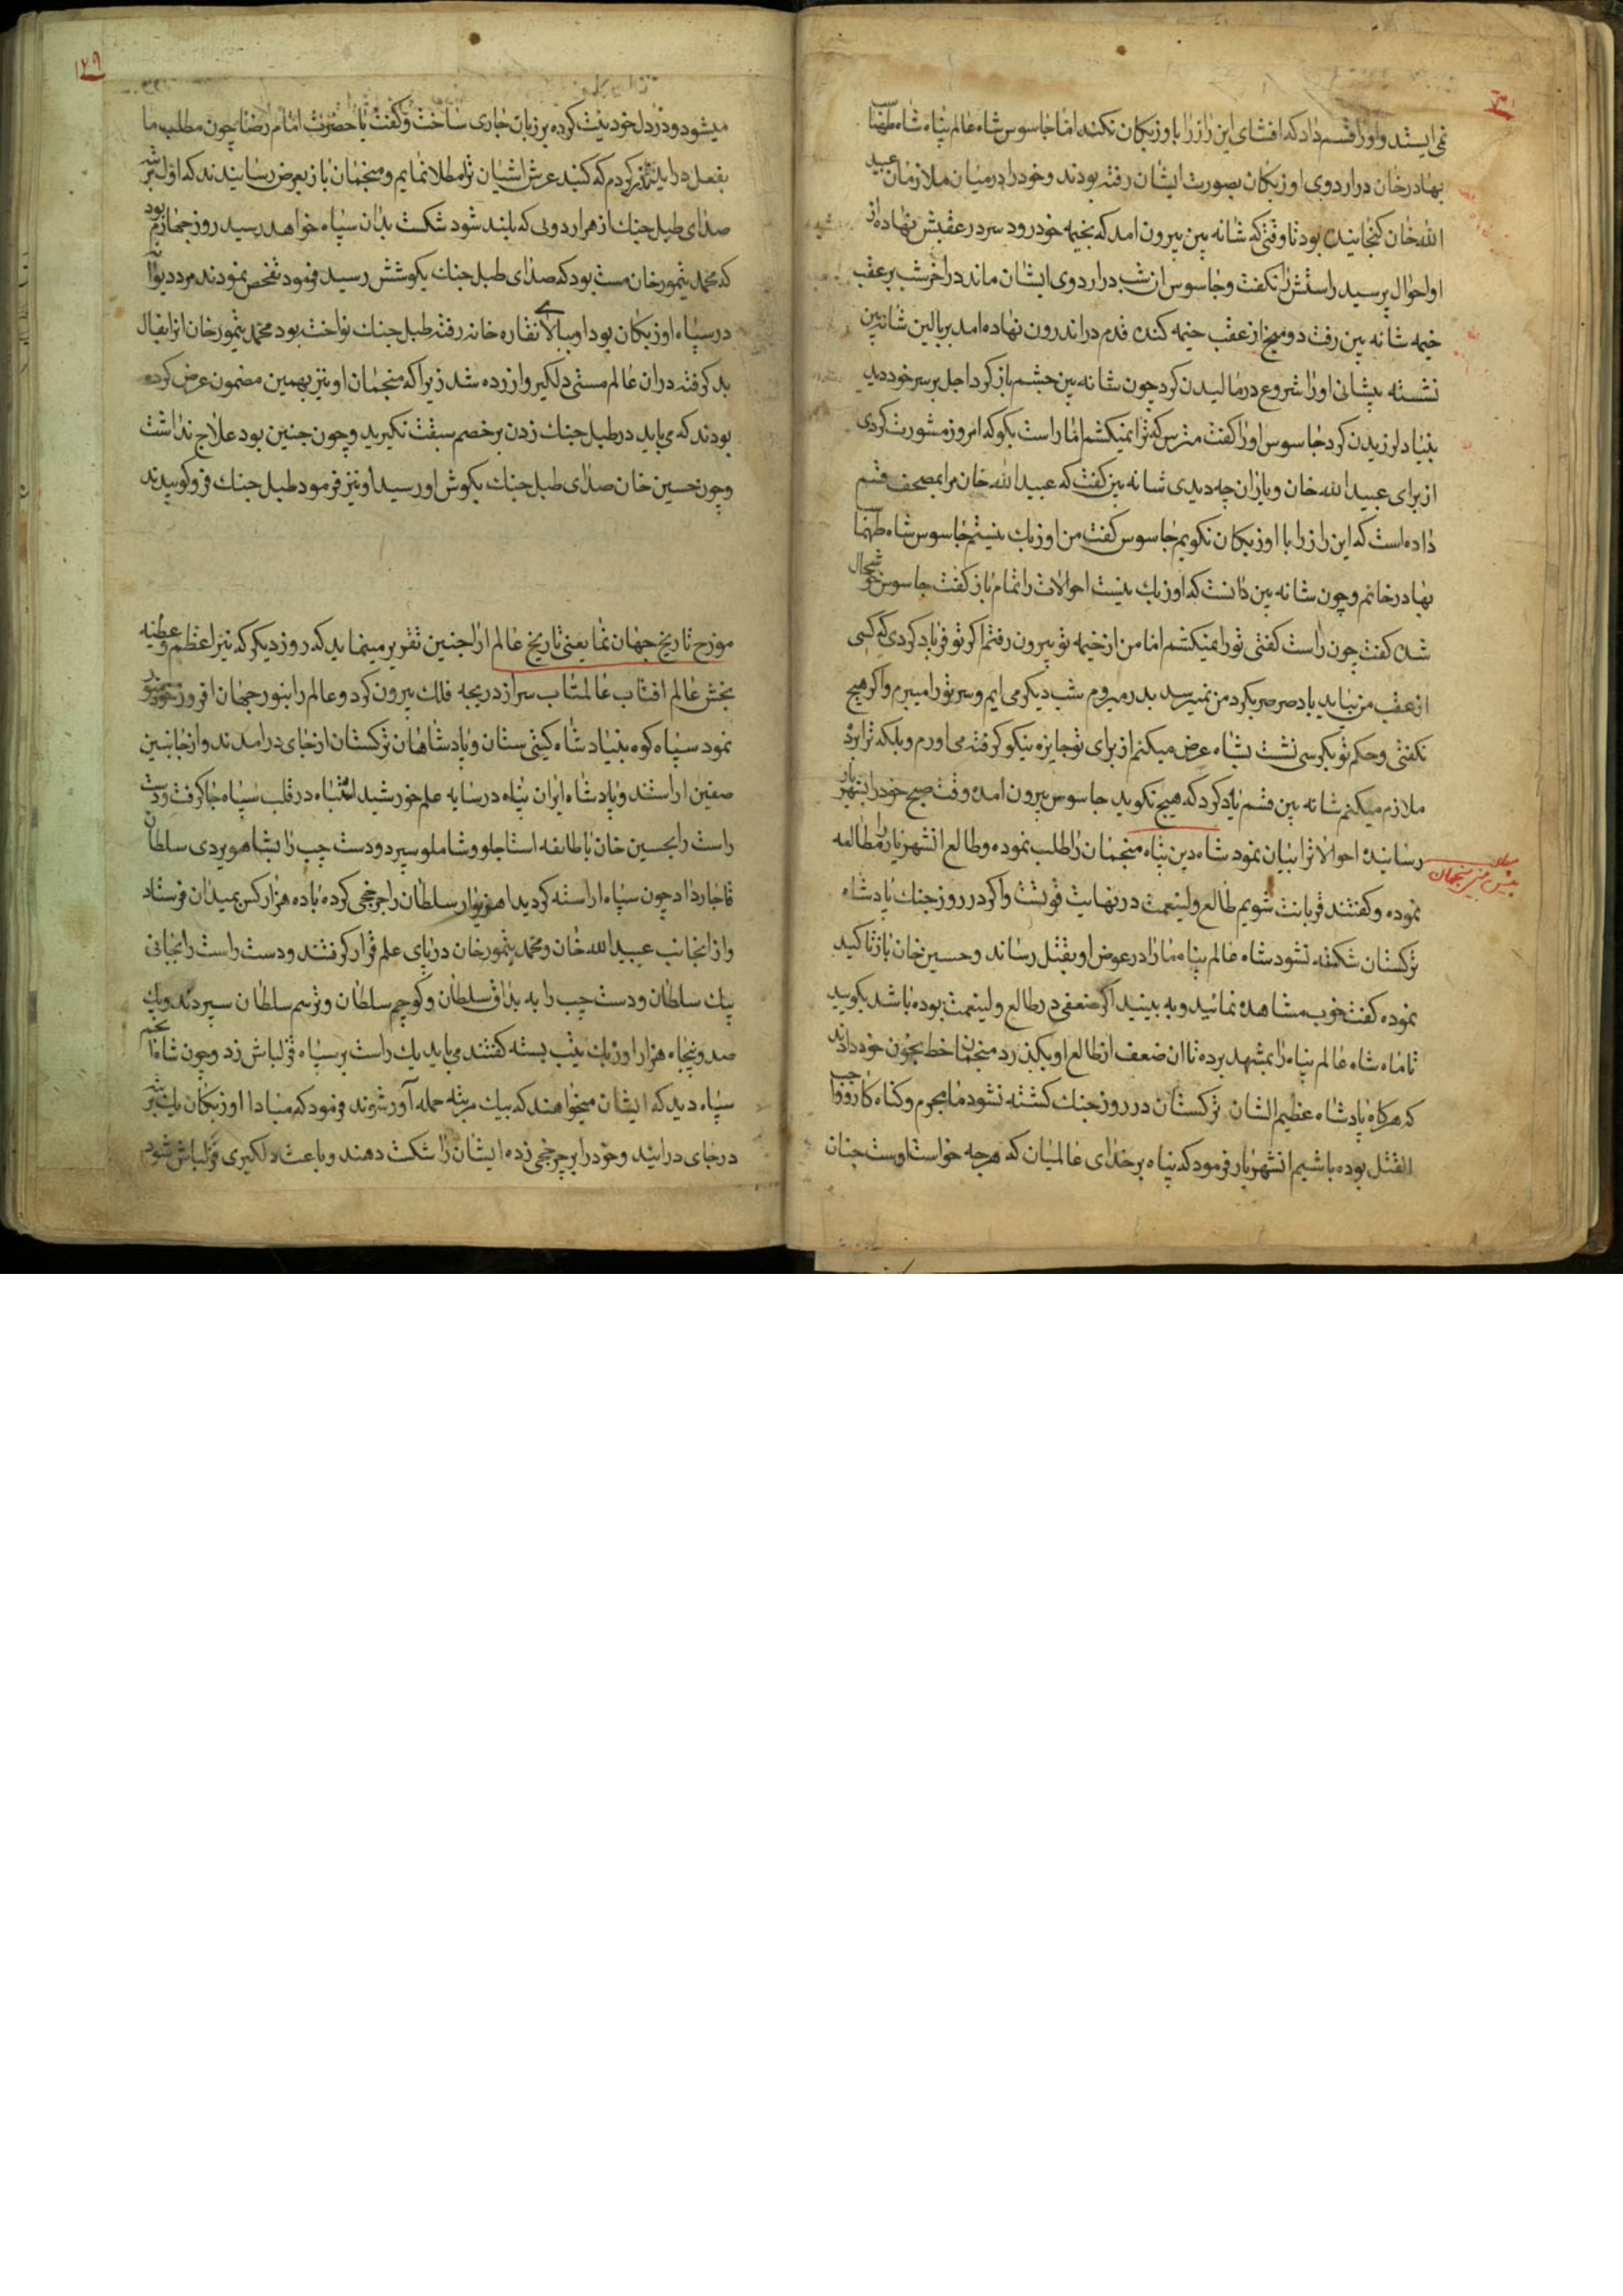 نمی ایستد و او را قسم داد که افشای این راز را با وزبکان نکند اما جاسوس شاه عالم پناه شاه طهماسب
بهادرخان در اردوی اوزبکان بصورت ایشان رفته بودند و خود را در میان ملازمان عبید
الله خان کنجانیده بود تا وقتی که شانه بین بیرون امد که بخیمه خود رود سر در عقبش نهاده از
او احوال پرسید راستش را نکفت و جاسوس ان شب در اردوی ایشان ماند در اخر شب بر عقب
خیمه شانه بین رفت دو میخ از عقب خیمه کنده قدم در اندرون نهاده امد بر بالین شانه بین
نشسته پیشانی او را شروع در مالیدن کرد چون شانه بین چشم باز کرد اجل بر سر خود دید
بنیاد لرزیدن کرد جاسوس او را کفت مترس که ترا نمیکشم اما راست بکو که امروز مشورت کردی
از برای عبید الله خان و یاران چه دیدی شانه بین کفت که عبید الله خان مرا بمصحف قسم
داده است که این راز را با اوزبکان نکویم جاسوس کفت من اوزبک نیستم جاسوس شاه طهماسب
بهادرخانم و چون شانه بین دانست که اوزبک نیست احوالات را تمام باز کفت جاسوس خوشحال
شده کفت چون راست کفتی تو را نمیکشم اما من از خیمه تو بیرون رفتم اکر تو فریاد کردی که کسی
از عقب من بیاید باد صرصر بکرد من نمیرسد بدر میروم شب دیکر می ایم و سر تو را میبرم و اکر هیچ
نکفتی و حکم تو بکرسی نشست بشاه عرض میکنم از برای تو جایزه نیکو کرفته می اورم و بلکه ترا برده
ملازم میکنم شانه بین قسم یاد کرد که هیچ نکوید جاسوس بیرون امده وقت صبح خود را بشهریار
رسانیده احوالاترا بیان نمود شاه دین پناه منجمان را طلب نموده و طالع انشهریار را مطالعه
نموده و کفتند قربانت شویم طالع ولینعمت در نهایت قوتست و اکر در روز جنک پادشاه
ترکستان شکفته نشود شاه عالم پناه ما را در عوض او بقتل رساند و حسین خان باز تاکید
نموده کفت خوب مشاهده نمائید و به بینید اکر ضعفی در طالع ولینعمت بوده باشد بکویید
تا ماه شاه عالم پناه را بمشهد برده تا ان ضعف از طالع او بکذرد منجمان خط بخون خود دادند
که هرکاه پادشاه عظیم الشان ترکستان در روز جنک کشته نشود ما مجرم و کناه کار و واجب
القتل بوده باشیم انشهریار فرمود که پناه بر خدای عالمیان که هرچه خواست اوست چنان
۱۲۹
میشود و در دل خود نیت کرده بر زبان جاری ساخت و کفت یا حضرت امام رضا چون مطلب ما
بفعل در اید نذر کردم که کنبد عرش اشیان ترا مطلا نمایم و منجمان باز بعرض رسانیدند که اول مرتبه
صدای طبل جنک از هر اردویی که بلند شود شکست بدان سپاه خواهد رسید روز چهارم بود
که محمد تیمورخان مست بود که صدای طبل جنک بکوشش رسید فرمود تفحص نمودند مرد دیوانه
در سپاه اوزبکان بود او ببالای نقاره خانه رفته طبل جنک نواخت بود محمد تیمورخان انرا بفال
بد کرفته دران عالم مستی دلکیر و ازرده شد زیرا که منجمان او نیز بهمین مضمون عرض کرده
بودند که می باید در طبل جنک زدن بر خصم سبقت نکیرید و چون چنین بود علاج نداشت
و چون حسین خان صدای طبل جنک بکوش او رسید او نیز فرمود طبل جنک فرو کوبیدند
مورخ تاریخ جهان نما یعنی تاریخ عالم ارا چنین تقریر مینماید که روز دیکر که نیر اعظم و عطیه
بخش عالم افتاب عالمتاب سر از دریچه فلک بیرون کرد و عالم را بنور جهان افروز خود منور
نمود سپاه کوه بنیاد شاه کیتی ستان و پادشاهان ترکستان از جای درامدند و از جانبین
صفین اراستند و پادشاه ایران پناه در سایه علم خورشید اشتباه در قلب سپاه جا کرفت و دست
راست را بحسین خان با طائفه استاجلو و شاملو سپرد و دست چپ را بشاهویردی سلطان
قاجار داد چون سپاه اراسته کردید سلطان را چرخچی کرده با ده هزار کس بمیدان فرستاد
و از انجانب عبید الله خان و محمد تیمورخان در پای علم قرار کرفتند و دست راست را بجانی
بیک سلطان و دست چپ را به براق سلطان و کوچم سلطان و ترسم سلطان سپردند و یک
صد و پنجاه هزار اوزبک تیپ بسته کفتند می باید یک راست بر سپاه قزلباش زد و چون شاه انجم
سپاه دید که ایشان میخواهند که بیک مرتبه حمله آور شوند فرمود که مبادا اوزبکان یک مرتبه
در جای در ایند و خود را بر چرخچی زده ایشان را شکست دهند و باعث دلکیری قزلباش شود